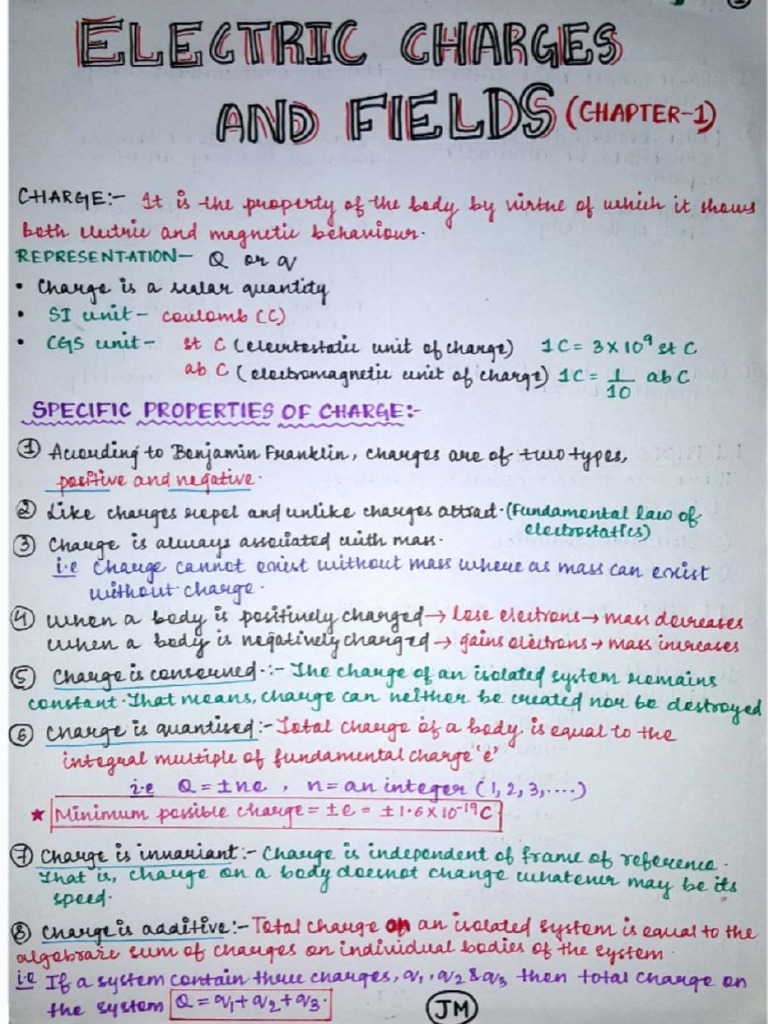 ELECTRIC CHARGES
AND FIELDS (CHAPTER-1)
CHARGE:- It is the property of the body by virtue of which it shows
both electric and magnetic behaviour.
REPRESENTATION- Q or q
• Charge is a scalar quantity
• SI unit - coulomb (C)
• CGS unit - st C (electrostatic unit of charge) 1C = 3×10⁹ st C
ab C (electromagnetic unit of charge) 1C = 1/10 ab C
SPECIFIC PROPERTIES OF CHARGE:-
① According to Benjamin Franklin, charges are of two types,
positive and negative.
② Like charges repel and unlike charges attract. (Fundamental law of
electrostatics)
③ Charge is always associated with mass.
i.e Charge cannot exist without mass where as mass can exist
without charge.
④ When a body is positively charged → lose electrons → mass decreases
When a body is negatively charged → gains electrons → mass increases
⑤ Charge is conserved.:- The charge of an isolated system remains
constant. That means, charge can neither be created nor be destroyed
⑥ Charge is quantised:- Total charge of a body is equal to the
integral multiple of fundamental charge "e"
i.e Q = ±ne , n = an integer (1, 2, 3, ....)
★ Minimum possible charge = ±e = ±1.6×10⁻¹⁹C
⑦ Charge is invariant:- Charge is independent of frame of reference.
That is, charge on a body doesnot change whatever may be its
speed.
⑧ Charge is additive:- Total charge on an isolated system is equal to the
algebraic sum of charges on individual bodies of the system.
i.e If a system contain three charges, q₁, q₂ & q₃ then total charge on
the system Q = q₁ + q₂ + q₃.
JM